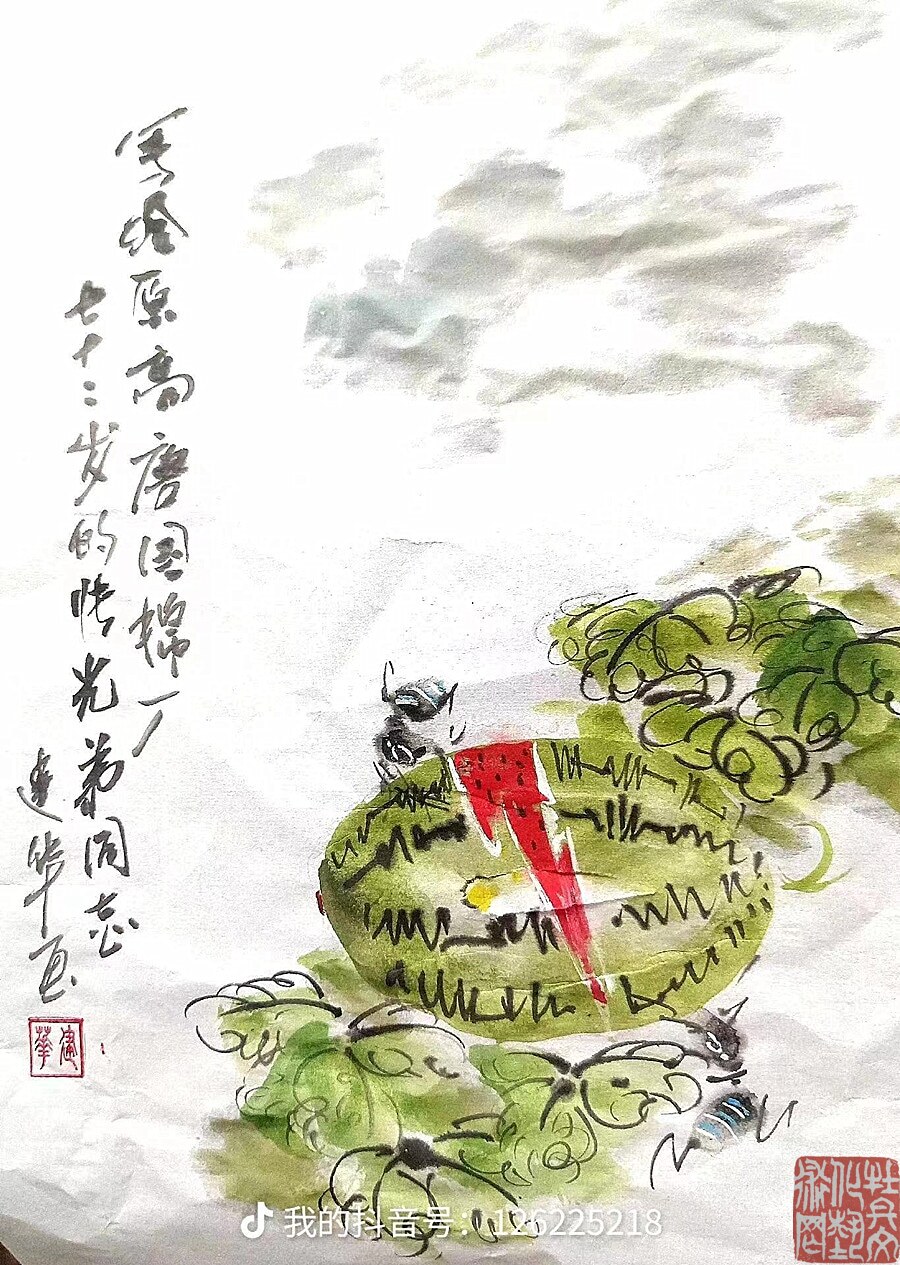 写给原高唐国棉一厂
七十二岁的怅光弟同志
建华画
建華
我的抖音号：126225218